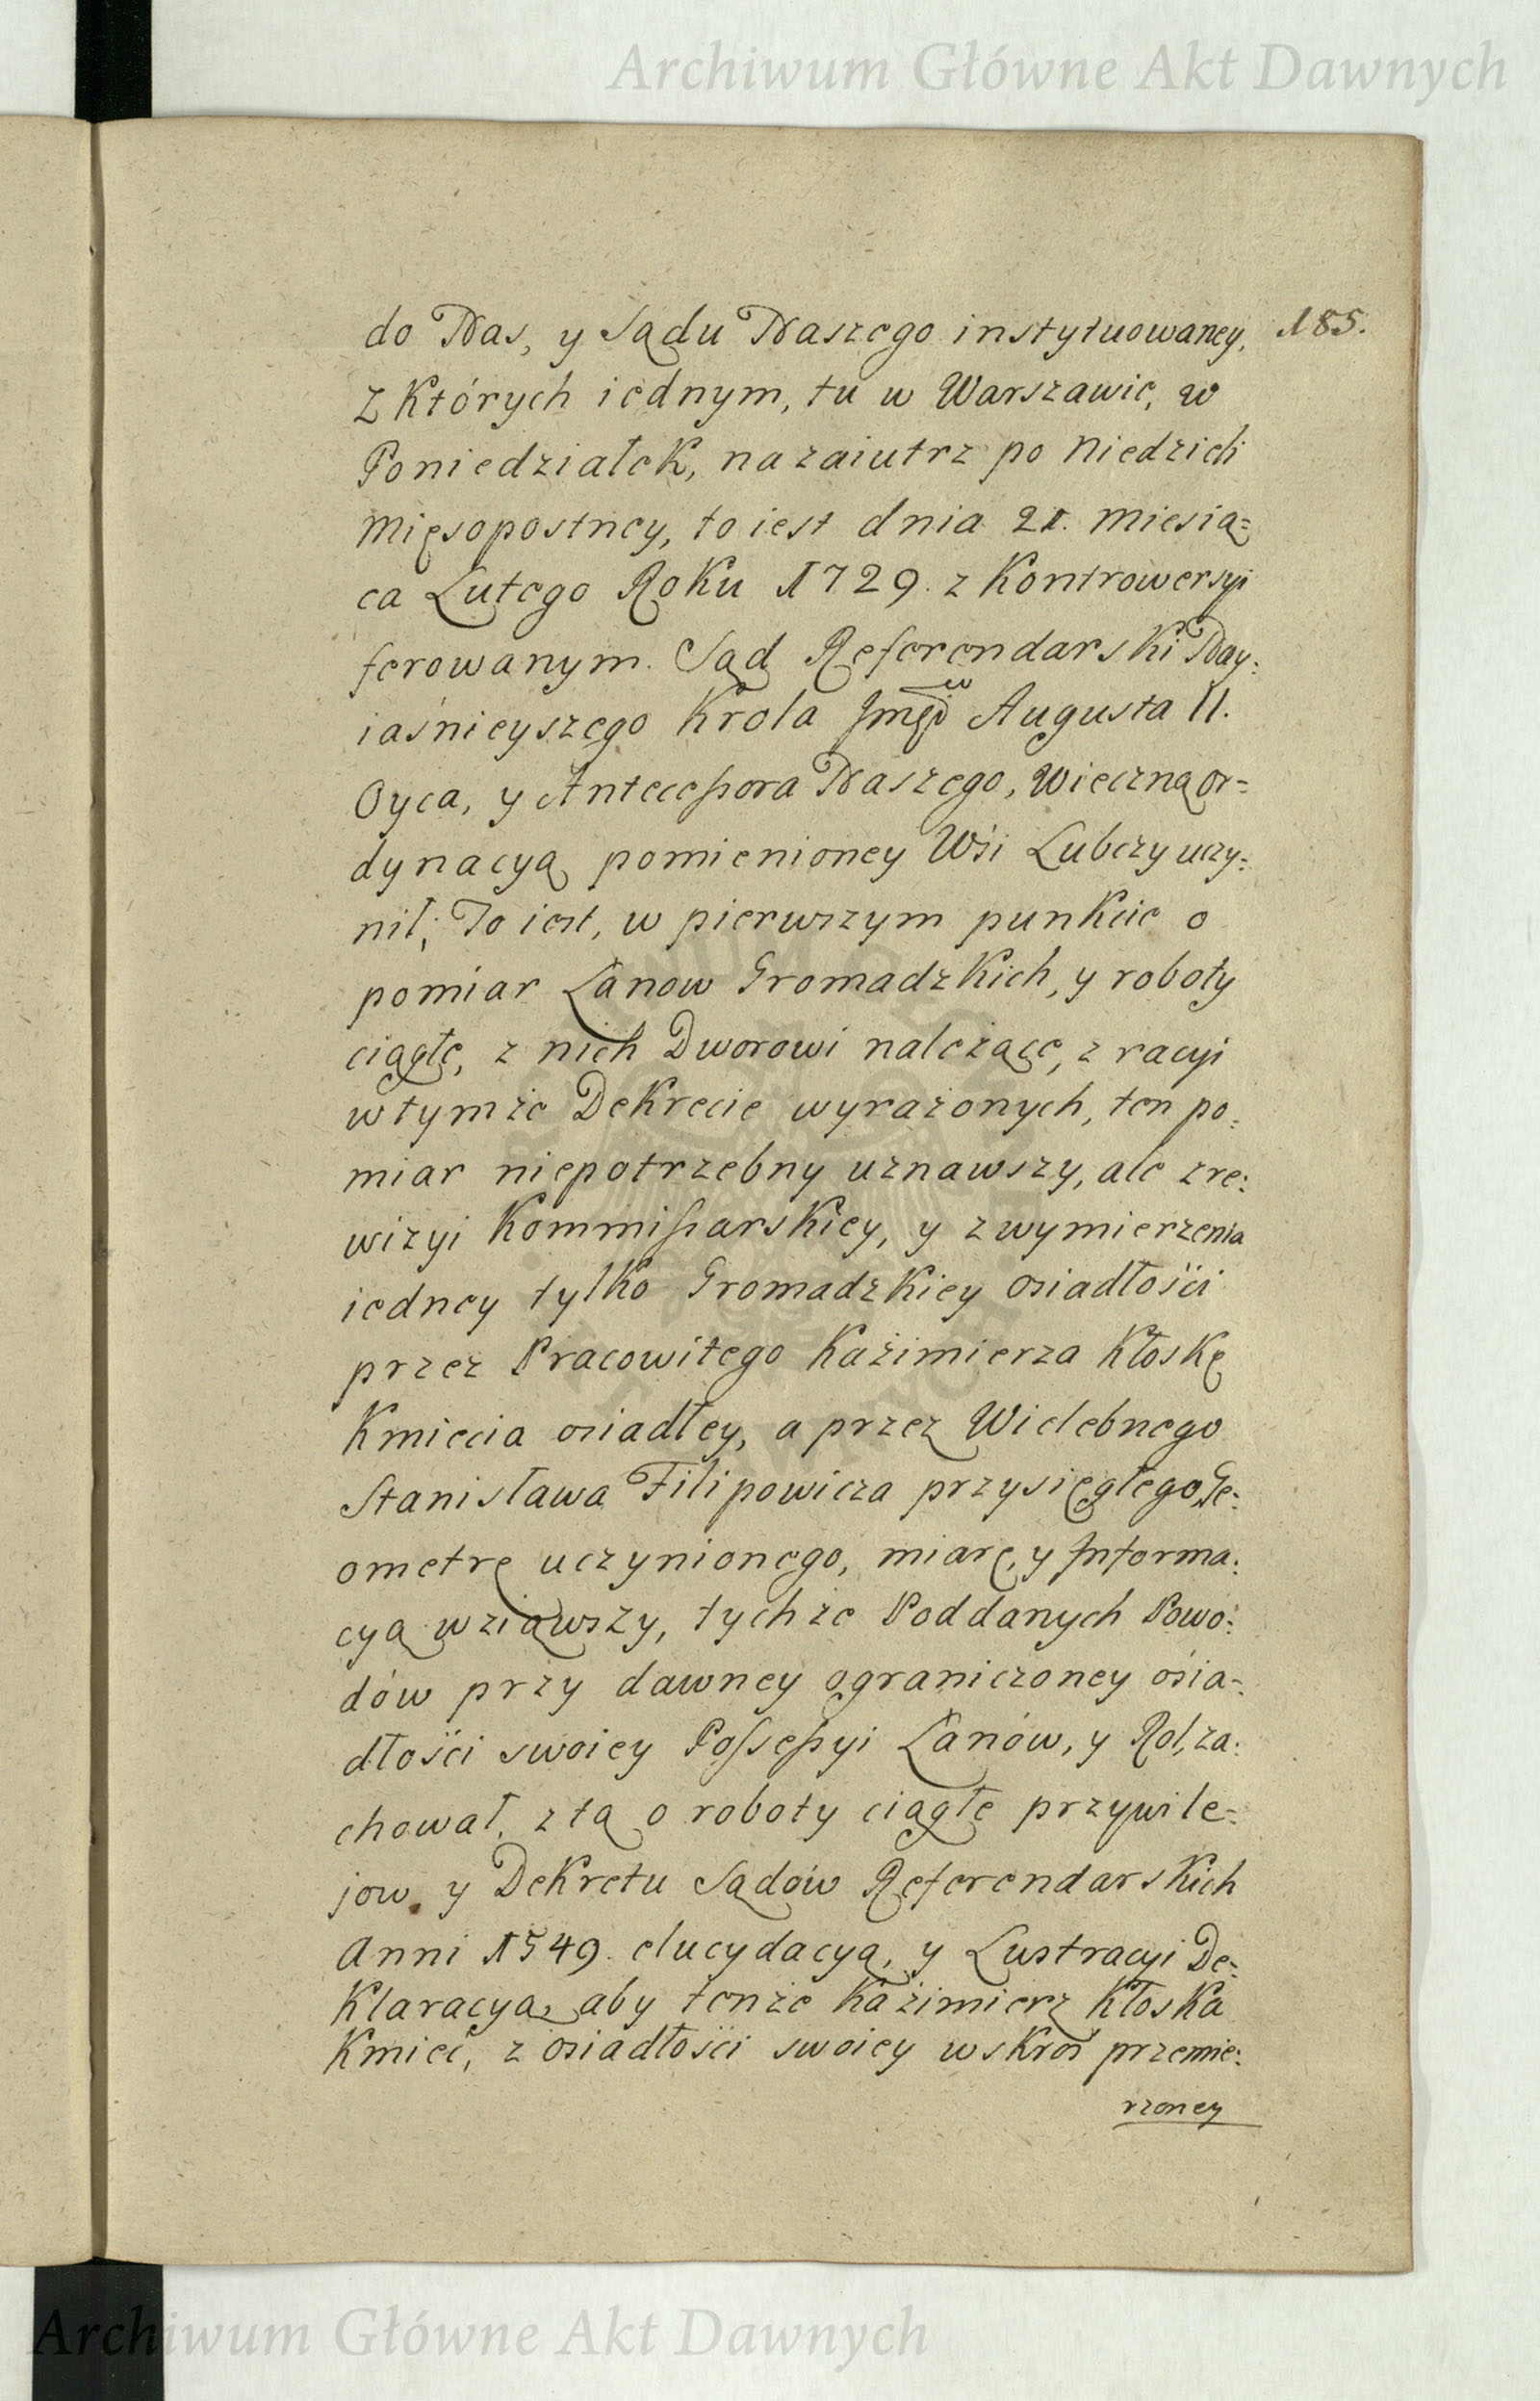 Archiwum Główne Akt Dawnych
do Nas, y Sądu Naszego instytuowaney, 185.
Z Których iednym, tu w Warszawie, w
Poniedziałek, nazaiutrz po Niedzieli
Mięsopostney, to iest dnia 21. Miesią=
ca Lutego Roku 1729. z Kontrowersyi
ferowanym. Sąd Referendarski Nay:
iaśnieyszego Krola Augusta II.
Oyca, y Antecessora Naszego, Wieczną or=
dynacyą pomienioney Wśi Lubczy uczy:
nił; To iest, w pierwszym punkcie o
pomiar Łanow Gromadzkich, y roboty
ciągłe, z nich Dworowi należące, z racyi
w tymże Dekrecie wyrażonych, ten po:
miar niepotrzebny uznawszy, ale z re:
wizyi Kommissarskiey, y z wymierzenia
iedney tylko Gromadzkiey osiadłości
przez Pracowitego Kaźimierza Kłoskę
Kmiecia osiadłey, a przez Wielebnego
Stanisława Filipowicza przysięgłego Ge:
ometrę uczynionego, miarę, y Informa:
cyą wziąwszy, tychże Poddanych Powo:
dów przy dawney ograniczoney ośia=
dłości swoiey Possessyi Łanów, y Rol, za:
chował, z tą o roboty ciągłe przywile=
jow, y Dekretu Sądów Referendarskich
Anni 1549. elucydacyą, y Lustracyi De=
Klaracyą, aby tenże Kaźimierz Kłoska
Kmieć, z osiadłości swoiey wskroś przemie:
rzoney
Archiwum Główne Akt Dawnych